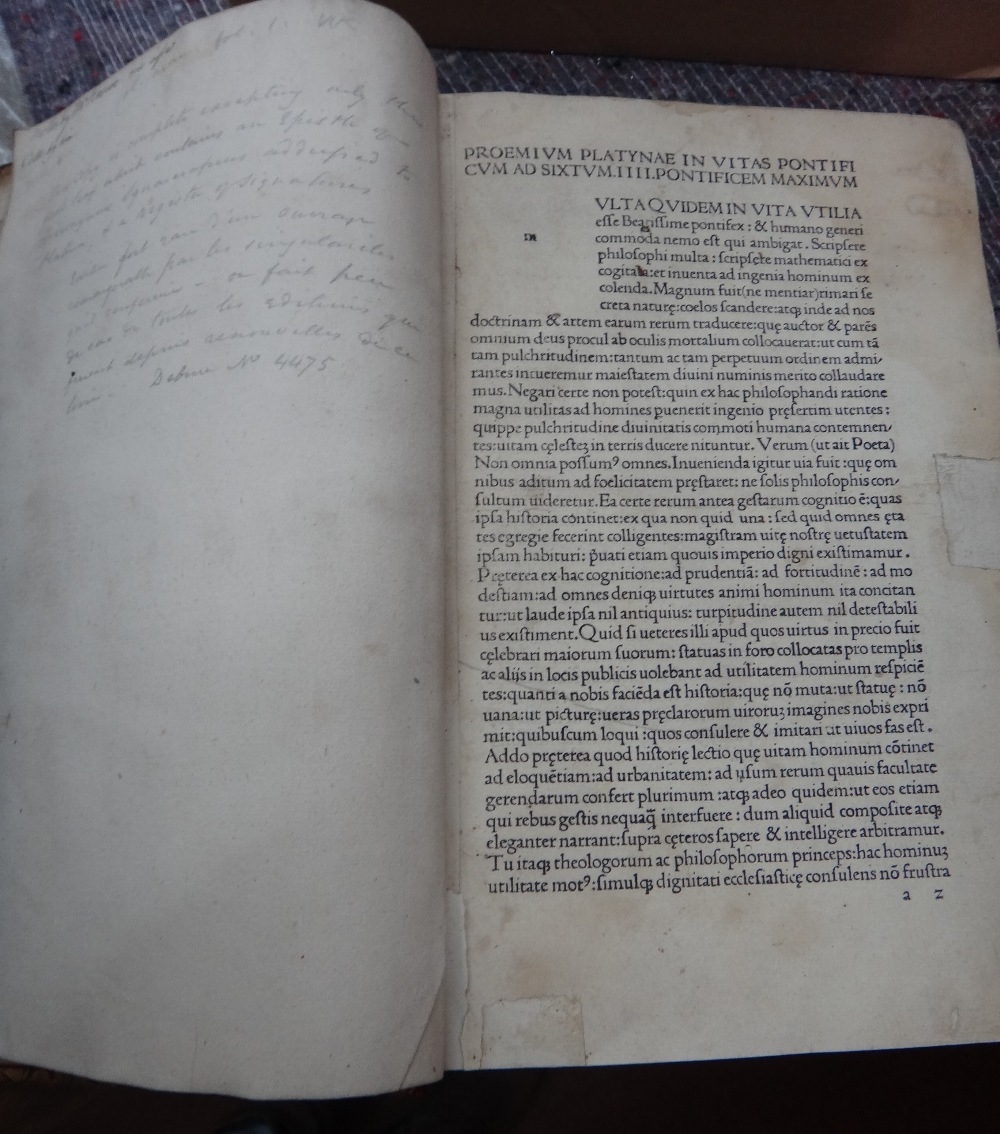 fol. 1.
complete excepting only three
which contains an Epistle from
addressed to
& a Register of Signatures
fort rare d'un ouvrage
par les singularités
on fait peu
de cas de toutes les editions qui
depuis renouvellées
Debure No 4475
PROEMIVM PLATYNAE IN VITAS PONTIFI
CVM AD SIXTVM.IIII.PONTIFICEM MAXIMVM
m
VLTA QVIDEM IN VITA VTILIA
eſſe Beatiſſime pontifex : & humano generi
commoda nemo eſt qui ambigat. Scripſere
philoſophi multa : ſcripſere mathematici ex
cogitata:et inuenta ad ingenia hominum ex
colenda. Magnum fuit(ne mentiar)rimari ſe
creta naturę:coelos ſcandere:atqꝫ inde ad nos
doctrinam & artem earum rerum traducere:quę auctor & parēs
omnium deus procul ab oculis mortalium collocauerat:ut cum tā
tam pulchritudinem:tantum ac tam perpetuum ordinem admi/
rantes intueremur maieſtatem diuini numinis merito collaudare
mus. Negari certe non poteſt:quin ex hac philoſophandi ratione
magna utilitas ad homines puenerit ingenio pręſertim utentes :
quippe pulchritudine diuinitatis commoti humana contemnen/
tes:uitam cęleſteꝫ in terris ducere nituntur. Verum (ut ait Poeta)
Non omnia poſſumꝰ omnes. Inuenienda igitur uia fuit :quę om
nibus aditum ad foelicitatem pręſtaret: ne ſolis philoſophis con/
ſultum uideretur. Ea certe rerum antea geſtarum cognitio ē:quas
ipſa hiſtoria continet:ex qua non quid una : ſed quid omnes ęta
tes egregie fecerint colligentes:magiſtram uitę noſtrę uetuſtatem
ipſam habituri: p̄uati etiam quouis imperio digni exiſtimamur .
Pręterea ex hac cognitione:ad prudentiā: ad fortitudinē : ad mo
deſtiam:ad omnes deniqꝫ uirtutes animi hominum ita concitan
tur:ut laude ipſa nil antiquius: turpitudine autem nil deteſtabili
us exiſtiment. Quid ſi ueteres illi apud quos uirtus in precio fuit
cęlebrari maiorum ſuorum: ſtatuas in foro collocatas pro templis
ac alijs in locis publicis uolebant ad utilitatem hominum reſpiciē
tes:quanti a nobis faciēda eſt hiſtoria:quę nō muta:ut ſtatuę : nō
uana:ut picturę:ueras pręclarorum uiroruꝫ imagines nobis expri
mit:quibuſcum loqui :quos conſulere & imitari ut uiuos fas eſt .
Addo pręterea quod hiſtorię lectio quę uitam hominum cōtinet
ad eloquētiam:ad urbanitatem: ad uſum rerum quauis facultate
gerendarum confert plurimum :atqꝫ adeo quidem:ut eos etiam
qui rebus geſtis nequaq̄ interfuere : dum aliquid compoſite atqꝫ
eleganter narrant:ſupra cęteros ſapere & intelligere arbitramur.
Tu itaqꝫ theologorum ac philoſophorum princeps:hac hominuꝫ
utilitate motꝰ:ſimulqꝫ dignitati eccleſiaſticę conſulens nō fruſtra
a 2